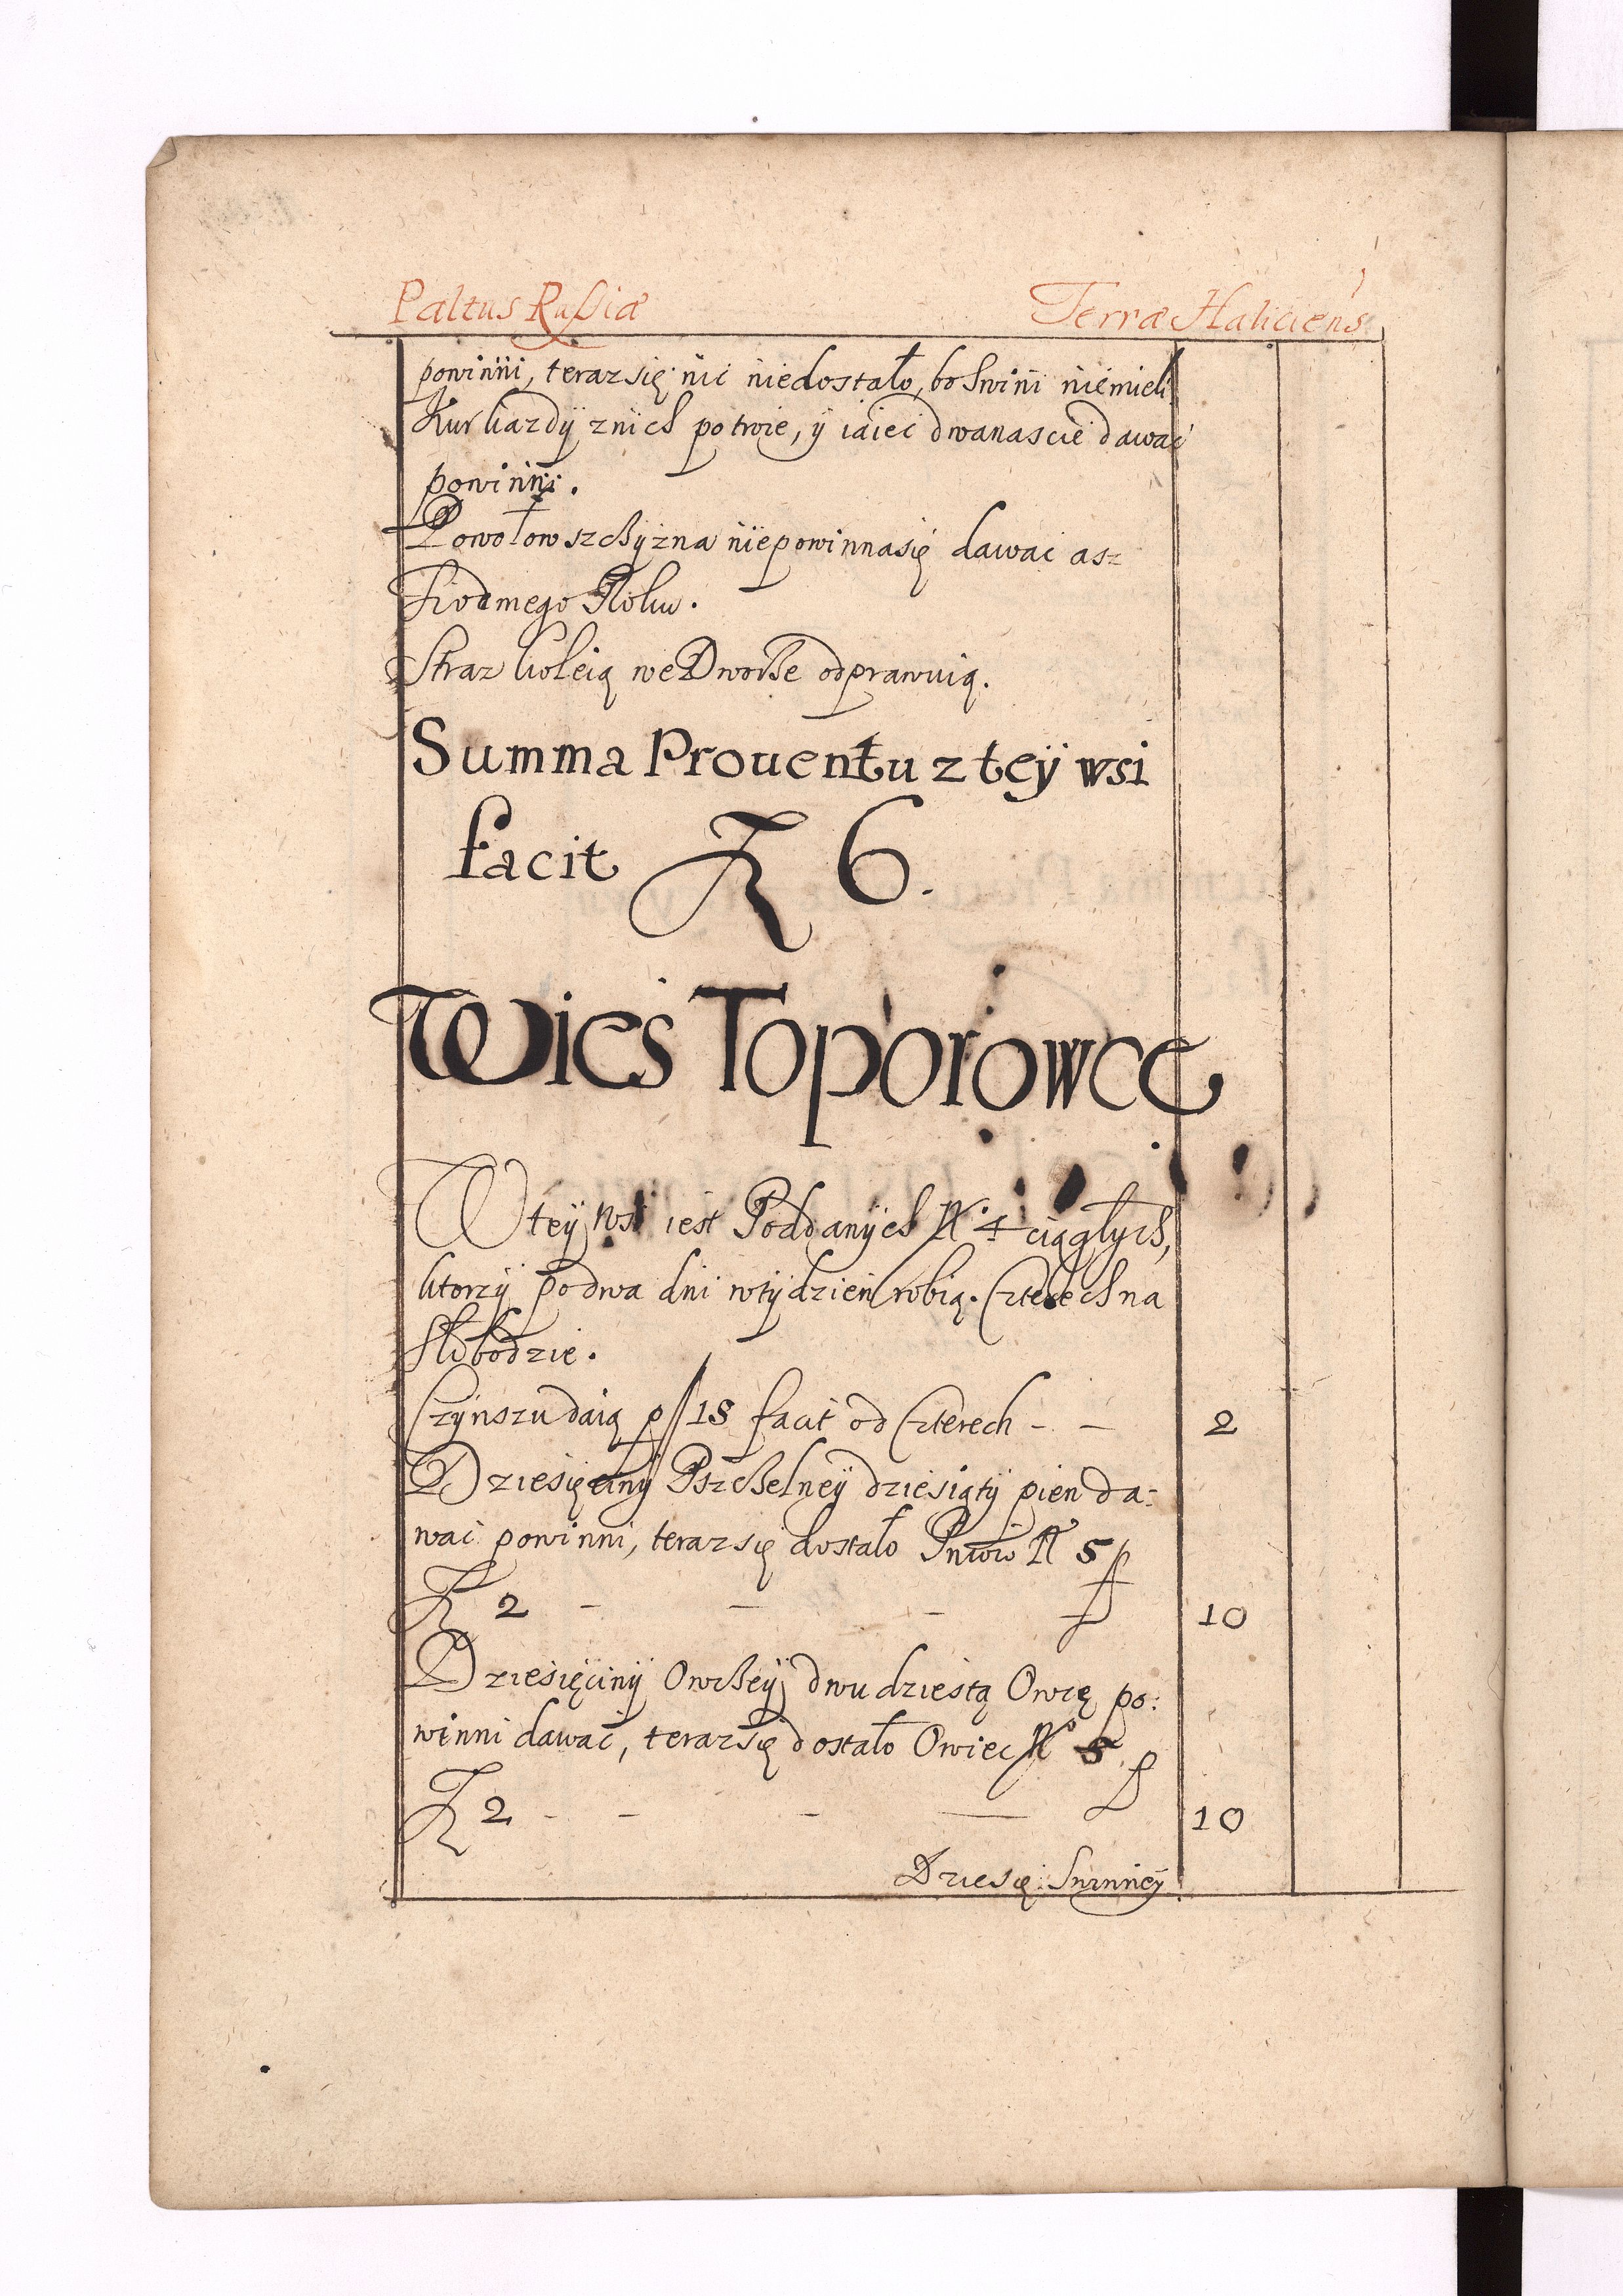 Paltus Russiæ Terræ Haliciens
powinni, teraz się nic niedostało, bo Swini niemieli
Kur kazdÿ znich po troie, ÿ iaiec dwanascie dawac
powinni.
Powołowszchÿzna niepowinna się dawac as-
Siodmego Roku.
Straz koleią we Dworze odprawuią.
Summa Prouentu z teÿ wsi
facit 6.
Wies Toporowce
W teÿ wsi iest Poddanÿch N 4 ciągłych,
ktorzÿ po dwa dni w tÿdzien robią. Czterech na
Słobodzie.
Czÿnszu daią p 15 facit od Czterech - - 2
Dziesięcinÿ Pszchelneÿ dziesiątÿ pien da-
wac powinni, teraz się dostało Pniow N 5 p
2 - - - - 10
Dziesięcinÿ Owczeÿ dwudziestą Owcę po:
winni dawac, teraz się dostało Owiec N 5 p
2 - - - - 10
Dziesię: Swinneÿ